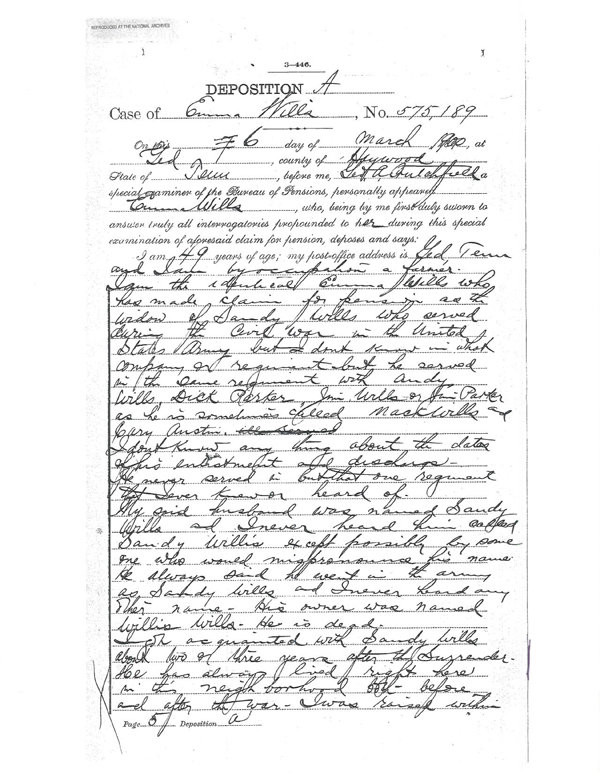 REPRODUCED AT THE NATIONAL ARCHIVES
1 1
3—446.
DEPOSITION A
Case of Emma Wills, No. 575,189
On this 6 day of March, at
Ged, county of Haywood
State of Tenn, before me, Geo. A. Crutchfield a
special examiner of the Bureau of Pensions, personally appeared
Emma Wills, who, being by me first duly sworn to
answer truly all interrogatories propounded to her during this special
examination of aforesaid claim for pension, deposes and says:
I am 49 years of age; my post-office address is Ged, Tenn
and I am by occupation a farmer.
I am the identical Emma Wills who
has made claim for pension as the
widow of Sandy Wills who served
during the Civil War in the United
States Army but I dont know in what
company or regiment but he served
in the same regiment with Andy
Wills, Dick Parker, Jim Wills or Jim Parker
as he is sometimes called Mack Wills and
Gary Austin.
I dont know any thing about the dates
of his enlistment and discharge -
He never served in but that one regiment
that I ever knew or heard of.
My said husband was named Sandy
Wills ad I never heard him called
Sandy Willis except possibly by some
one who would mispronounce his name
He always said he went in the army
as Sandy Wills ad I never heard any
other name - His owner was named
Willis Wills - He is dead.
I got acquainted with Sandy Wills
about two or three years after the Surrender -
He has always lived right here
in this neighborhood before
and after the war - I was raised within
Page 5 Deposition A